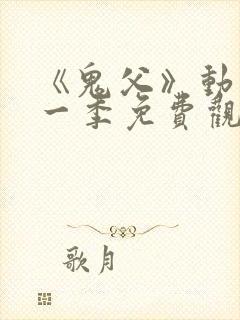 《鬼父》動
一季免費觀
歌月